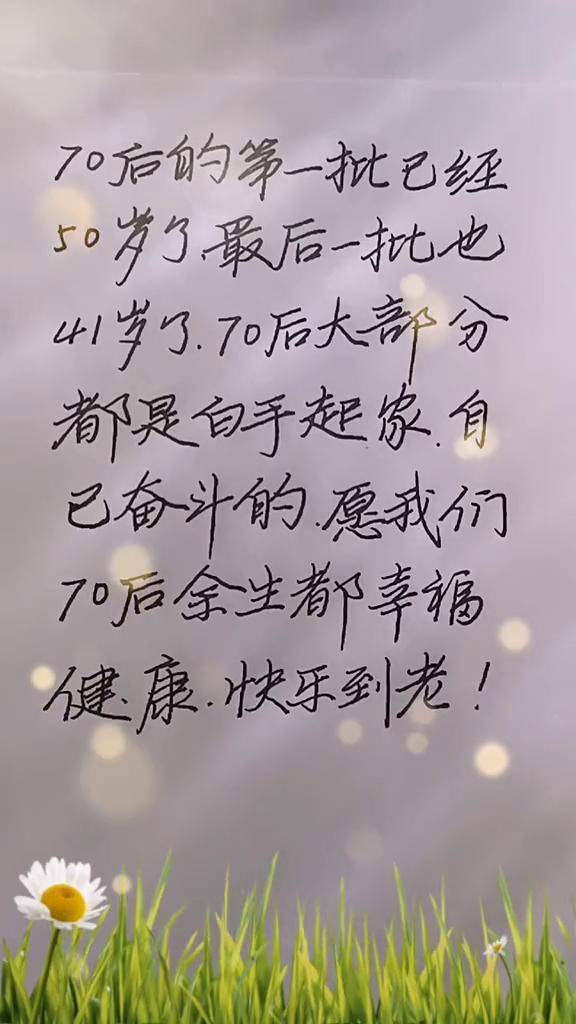 70后的第一批已经
50岁了,最后一批也
41岁了.70后大部分
都是白手起家.自
己奋斗的.愿我们
70后余生都幸福
健康.快乐到老!